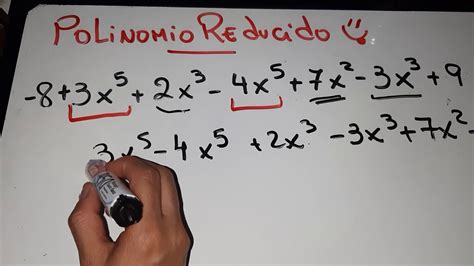 POLINOMIO REDUCIDO
-8+3x⁵+2x³-4x⁵+7x²-3x³+9
3x⁵-4x⁵+2x³-3x³+7x²-